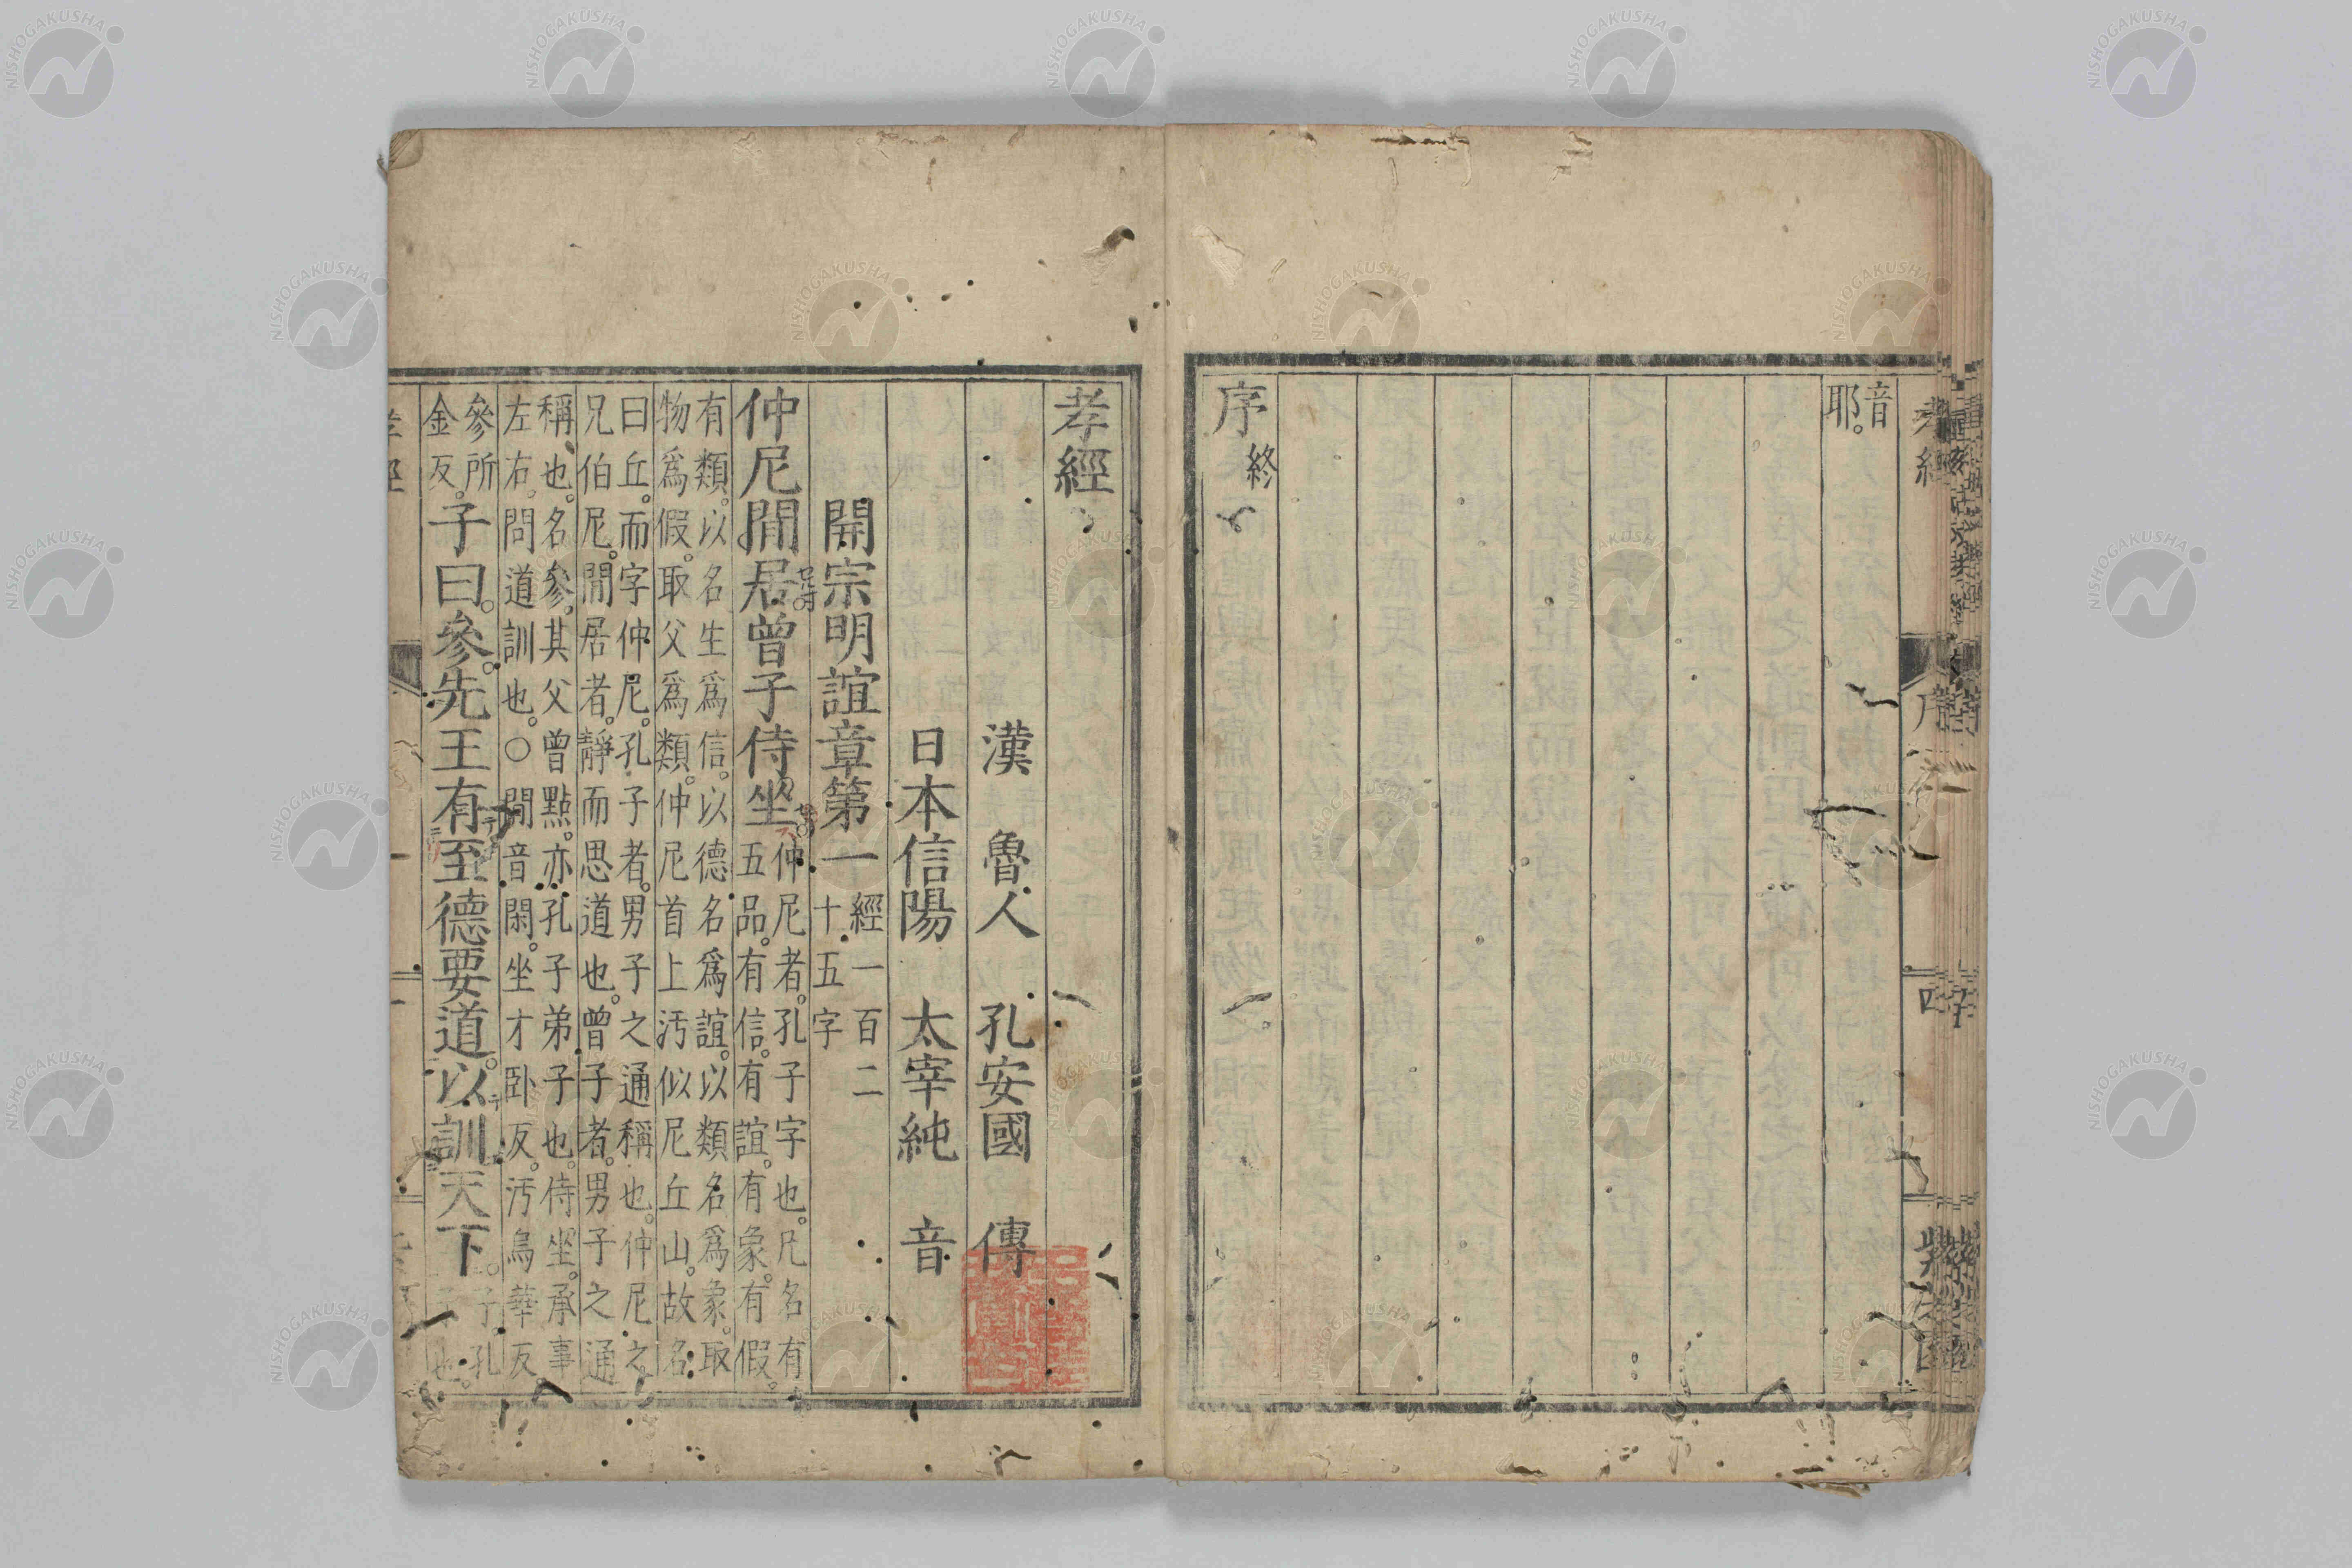 音
耶。
序終
孝經
漢　魯人　孔安國　傳
日本信陽　太宰純　音
開宗明誼章第一
經一百二
十五字
仲尼閒居曾子侍坐
仲尼者。孔子字也。凡名有
五品。有信。有誼。有象。有假。
有類。以名生爲信。以德名爲誼。以類名爲象。取
物爲假。取父爲類。仲尼首上汚似尼丘山。故名
曰丘。而字仲尼。孔子者。男子之通稱也。仲尼之
兄伯尼。閒居者。靜而思道也。曾子者。男子之通
稱也。名參。其父曾點。亦孔子弟子也。侍坐。承事
左右。問道訓也。○閒音閑。坐才臥反。汚烏華反
參所
金反。
子曰。參。先王有至德要道。以訓天下。
子孔
子也。
NISHOGAKUSHA